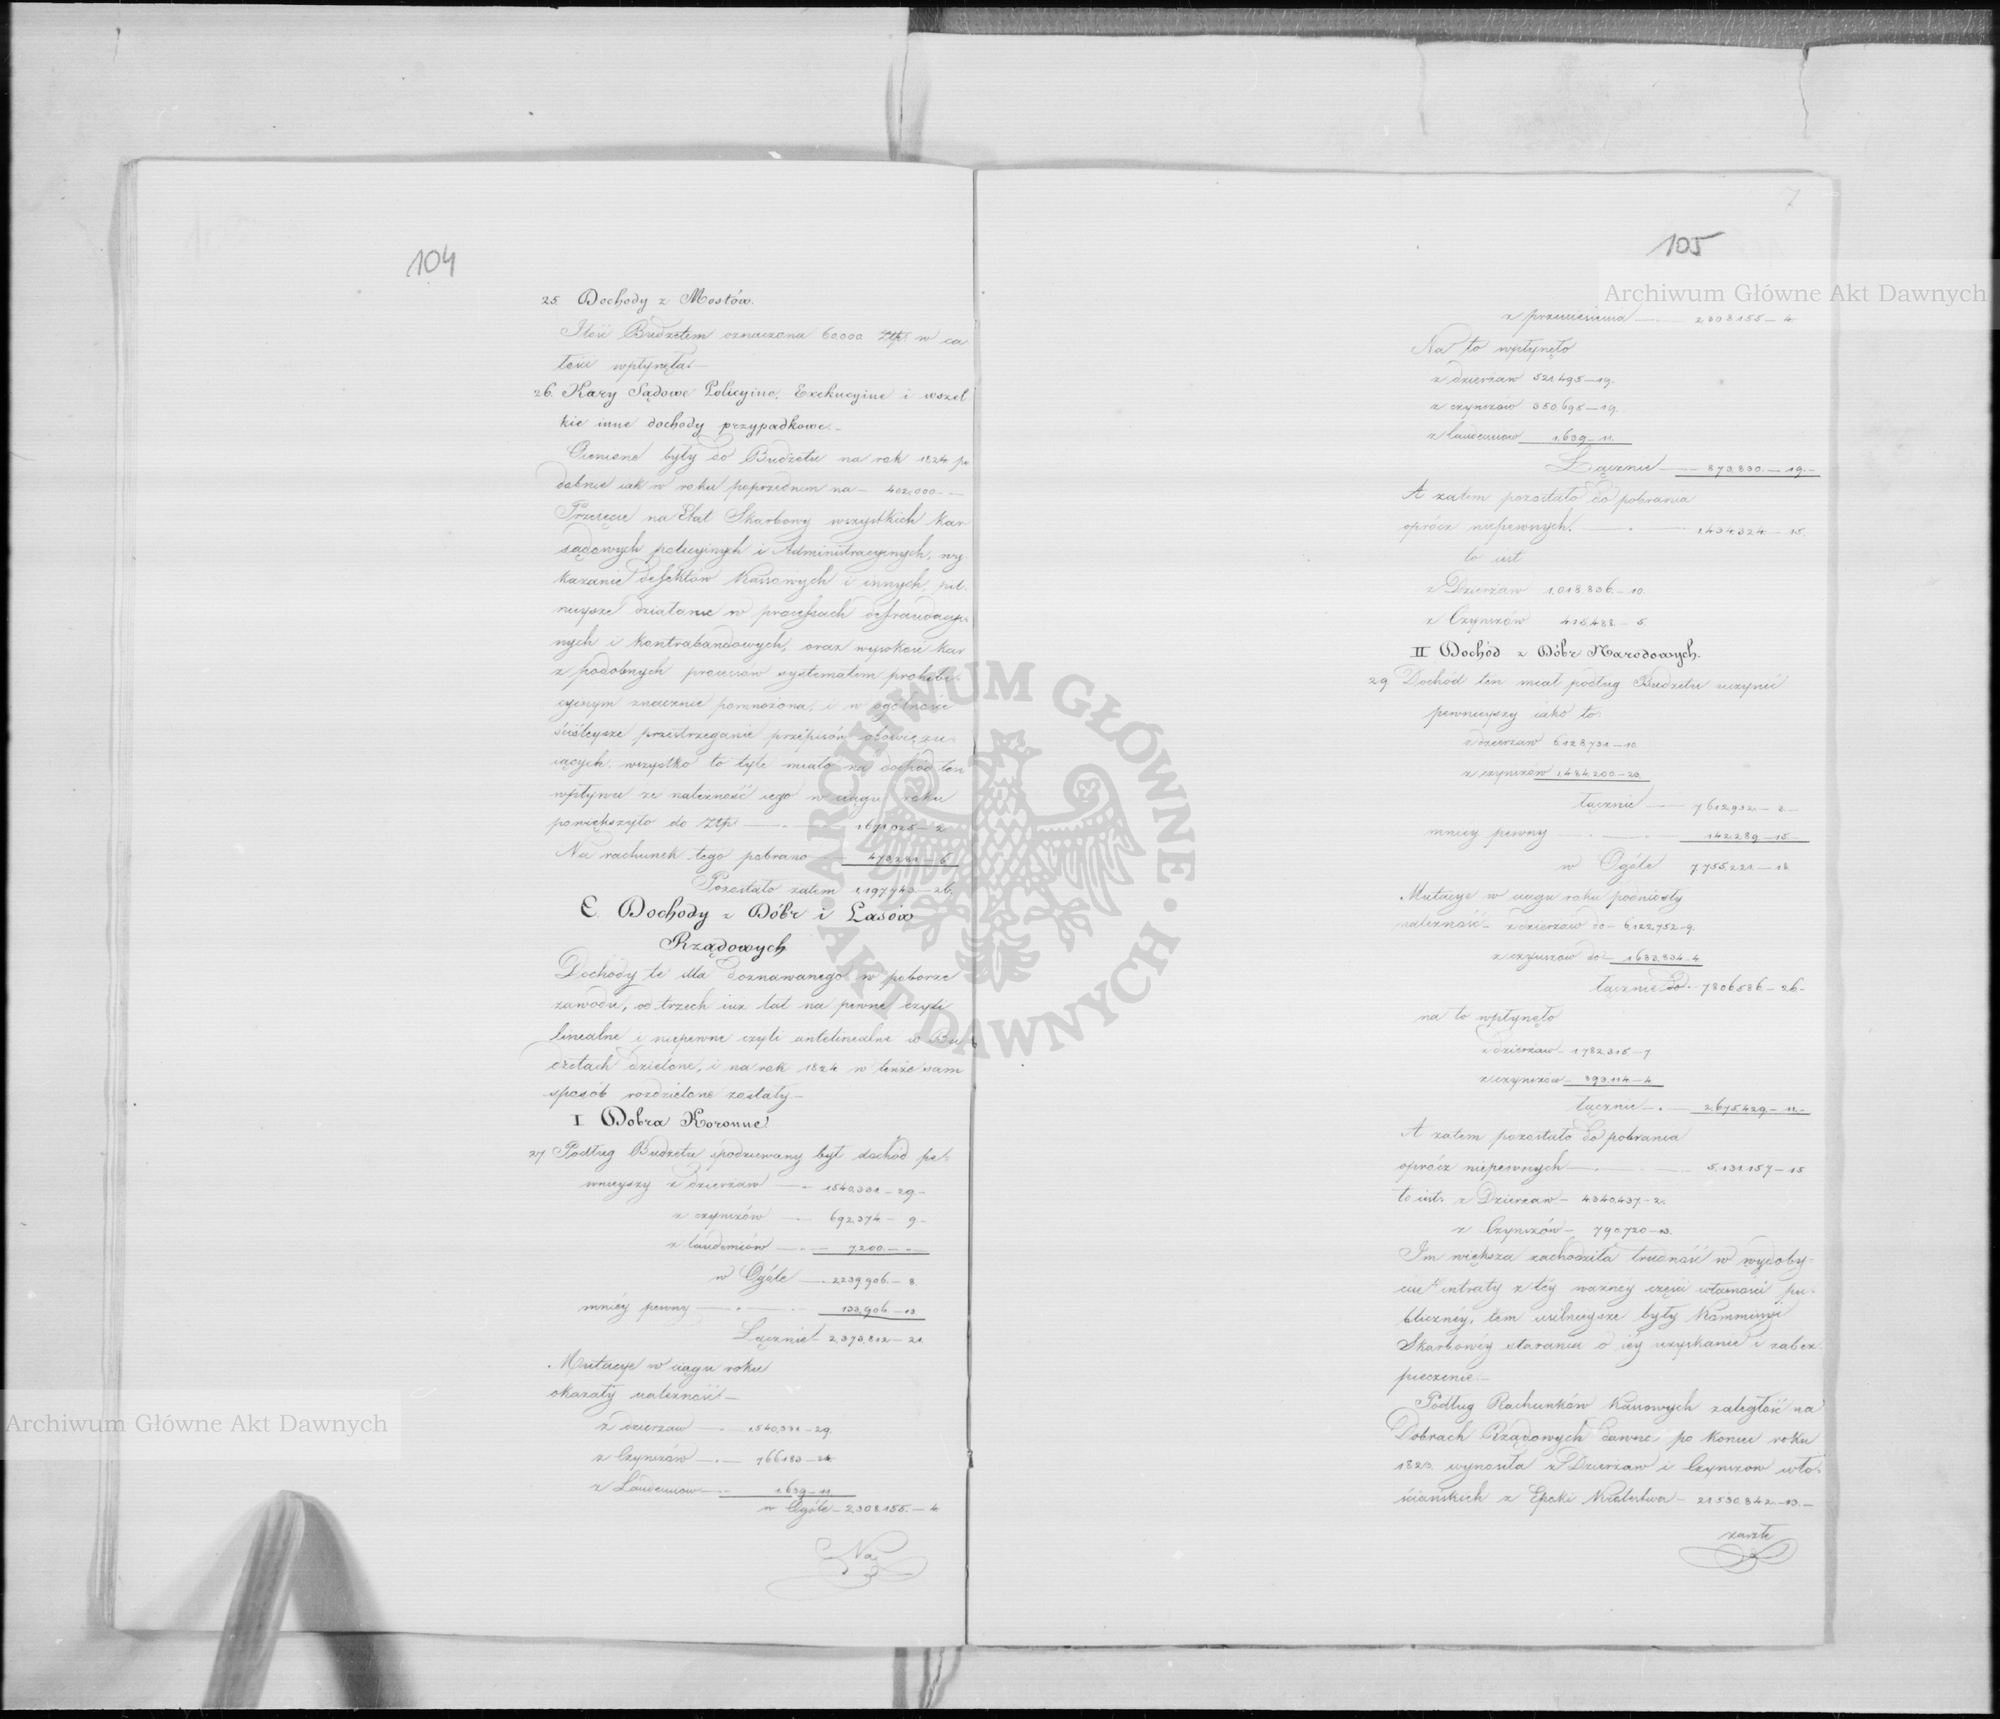 104
25. Dochody z Mostów.
Ilość Budżetem oznaczona 60,000 Złp. w ca-
łości wpłynęła.—
26. Kary Sądowe Policyine, Exekucyine i wszel-
kie inne dochody przypadkowe.—
Cenione były do Budżetu na rok 1824 po
dobnie iak w roku poprzednim na — 402,000 —
Przejęcie na Etat Skarbowy wszystkich kar
sądowych policyjnych i Administracyjnych, wy-
kazanie defektów Kassowych i innych, pil-
nieysze działanie w processach defraudacyi-
nych i kontrabandowych, oraz wysokość kar
z podobnych processów systematem prohibi-
cyinym znacznie pomnożona, i w ogólności
ściśleysze przestrzeganie przepisów obowięzu-
iących, wszystko to tyle miało na dochód ten
wpływu że należność iego w ciągu roku
powiększyło do Złp. — 1,671,025 — 2
Na rachunek tego pobrano — 473,281 — 6
Pozostało zatem 1,197,743 — 26,
C. Dochody z Dóbr i Lasów
Rządowych
Dochody te dla doznawanego w poborze
zawodu, od trzech iuż lat na pewne czyli
linealne i niepewne czyli antelinealne w Bu
dżetach dzielone, i na rok 1824 w tenże sam
sposób rozdzielone zostały —
I Dobra Koronne
27 Podług Budżetu spodziewany był dochód pe-
wnieyszy z dzierżaw — 1540,331 — 29 —
z czynszów — 692,374 — 9 —
z laudemiów — 7,200 —
w Ogóle — 2239,906 — 8
mniéy pewny — 133,906 — 13
Łącznie — 2,373,812 — 21
Mutacye w ciągu roku
okazały należność —
z dzierżaw — 1,540,331 — 29
z Czynszów — 766183 — 24
z Laudemiów — 1,639 — 11
w Ogóle — 2,308,155 — 4
Na
105
z przeniesienia — 2308155 — 4
Na to wpłynęło
z dzierżaw 521,495 — 19.
z czynszów 350,695 — 19.
z laudemiów 1,639 — 11
Łącznie — 873,830 — 19 —
A zatem pozostało do pobrania
oprócz niepewnych. — 1,434,324 — 15.
to iest
z Dzierżaw 1,018,836 — 10.
z Czynszów 415,488 — 5
II Dochód z Dóbr Narodowych.
29 Dochód ten miał podług Budżetu uczynić
pewnieyszy iako to
z dzierżaw 6,128,731 — 10
z czynszów 1,484,200 — 23.
łącznie — 7,612,932 — 3 —
mniey pewny — 142,289 — 15 —
w Ogóle 7,755,221 — 18
Mutacye w ciągu roku podniosły
należność — z dzierżaw do — 6,122,752 — 9
z czynszów do — 1683,834 — 4
łącznie do — 7806586 — 26 —
na to wpłynęło
z dzierżaw — 1,782,315 — 7
z czynszów — 893,114 — 4
łącznie — 2,675,429 — 11 —
A zatem pozostało do pobrania
oprócz niepewnych — 5,131,157 — 15
to iest z Dzierżaw — 4,340,437 — 2.
z Czynszów — 790,720 — 13.
Im większa zachodziła trudność w wydoby-
ciu intraty z téy ważnéy części własności pu-
blicznéy, tem usilnieysze były Kommissyi
Skarbowéy starania o iéy uzyskanie i zabez-
pieczenie. —
Podług Rachunków Kassowych zaległość na
Dobrach Rządowych dawne po koniec roku
1823 wynosiła z Dzierżaw i Czynszow wło-
ściańskich z Epoki Królestwa — 21,530,842 — 13 —
zaszłe
Archiwum Główne Akt Dawnych
Archiwum Główne Akt Dawnych
ARCHIWUM GŁÓWNE · AKT DAWNYCH ·